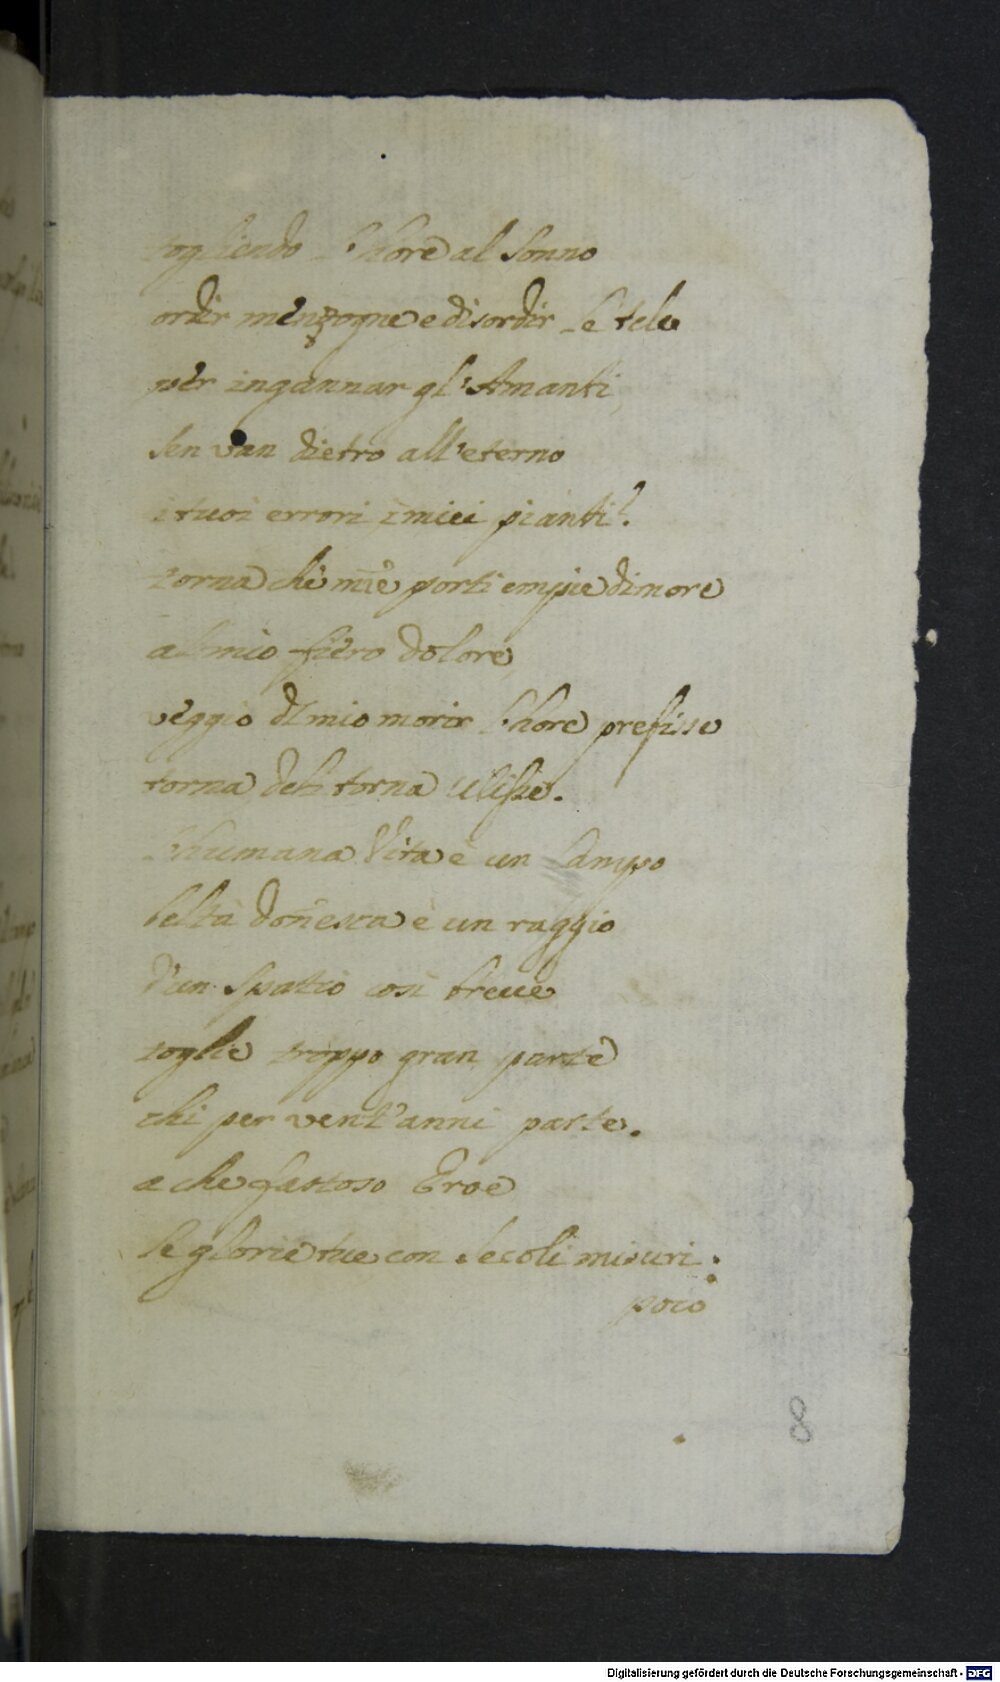 togliendo l'hore al sonno
ordir menzogne e disordir le tele
per ingannar gl'Amanti,
sen van dietro all'eterno
i tuoi errori, i miei pianti?
torna che m̃e porti empie dimore
al mio fiero dolore,
veggio di mio morir l'hore prefisse
torna, deh torna Ulisse.
l'humana Vita è un lampo
beltà doñesca è un raggio
d'un spatio così breve
toglie troppo gran parte
chi per vent'anni parte.
a che fastoso Eroe
le glorie tue con secoli misuri:
poco
8
Digitalisierung gefördert durch die Deutsche Forschungsgemeinschaft - DFG